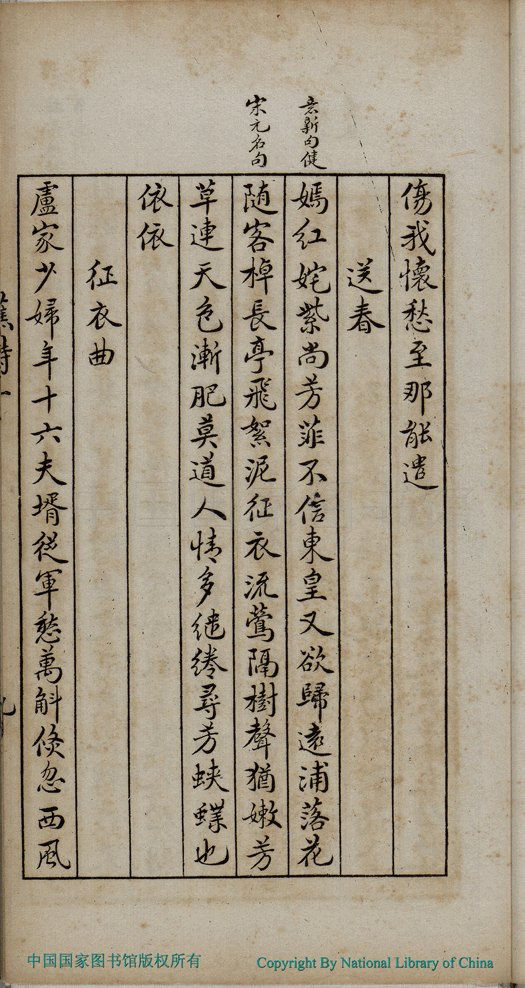 意新句健
宋元名句
傷我懷愁至那能遣
送春
嫣紅姹紫尚芳菲不信東皇又欲歸遠浦落花
随客棹長亭飛絮泥征衣流鶯隔樹聲猶嫩芳
草連天色漸肥莫道人情多繾綣尋芳蛺蝶也
依依
征衣曲
盧家少婦年十六夫壻從軍愁萬斛倐忽西風
中国国家图书馆版权所有
Copyright By National Library of China